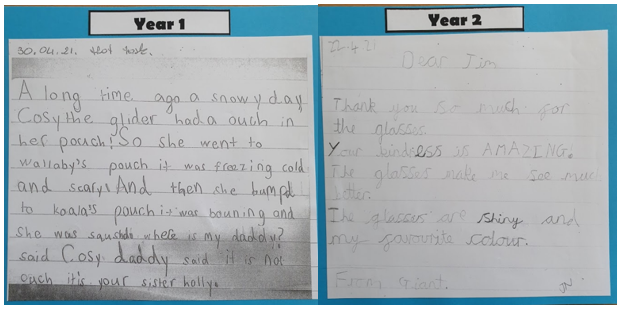 Year 1
30.04.21. Hot task.
A long time ago a snowy day
Cosy the glider had a ouch in
her pouch! So she went to
wallaby's pouch it was freezing cold
and scary! And then she bumpd
to koala's pouch it was bouning and
she was squshd where is my daddy?
said Cosy. daddy said it is not
ouch it's your sister holly.
Year 2
Dear Jim
Thank you so much for
the glasses.
Your kindess is AMAZING!
The glasses make me see much
The glasses are shiny and
my favourite colour.
From Giant.